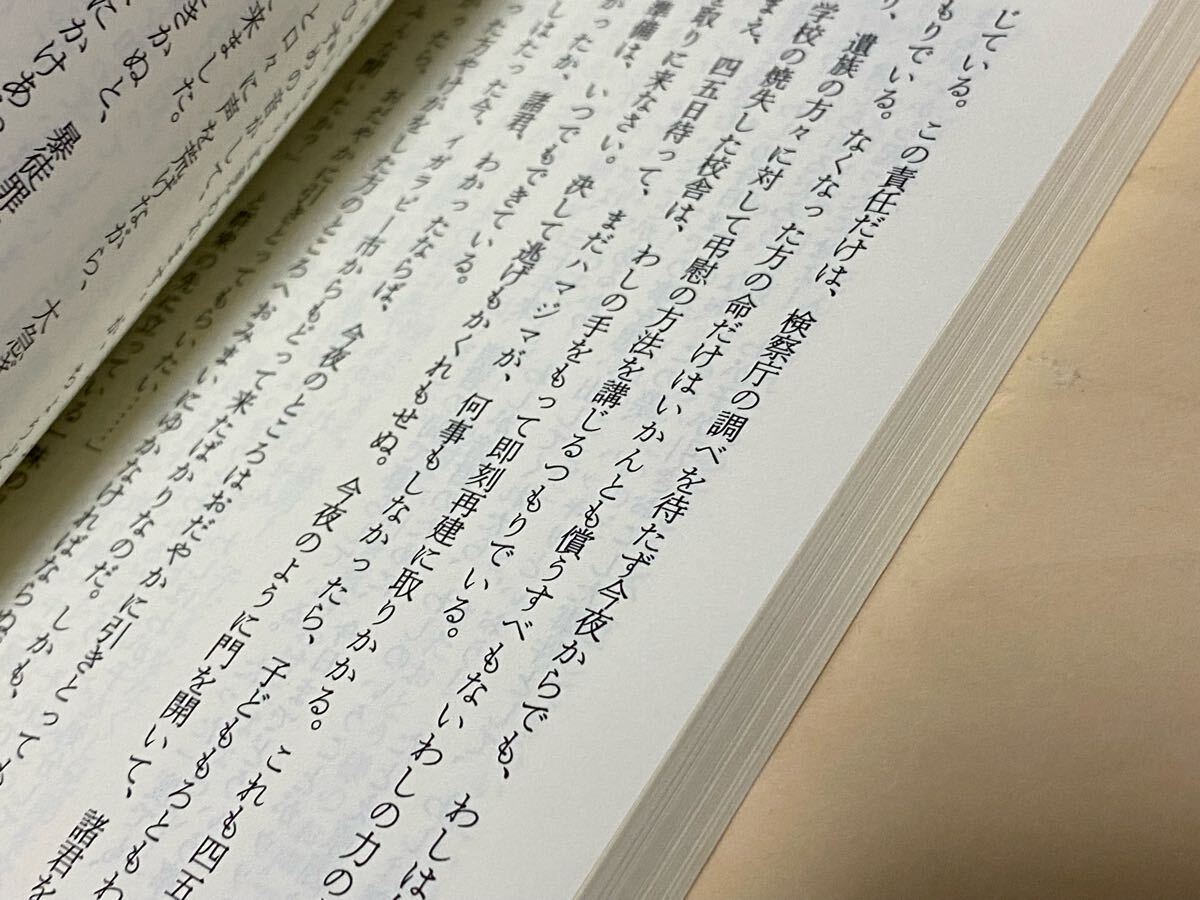 じている。この責任だけは、検察庁の調べを待たず今夜からでも、わしは
もりでいる。なくなった方の命だけはいかんとも償うすべもないわしの力の
り、遺族の方々に対して弔慰の方法を講じるつもりでいる。
学校の焼失した校舎は、わしの手をもって即刻再建に取りかかる。これも四五
まえ、四五日待って、まだハマジマが、何事もしなかったら、子どももろともわ
を取りに来なさい。決して逃げもかくれもせぬ。今夜のように門を開いて、諸君を
準備は、いつでもできている。
ったか、諸君、わかったならば、今夜のところはおだやかに引きとっても
しはたった今、イガラビー市からもどって来たばかりなのだ。しかも、
った方やけがをした方のところへおみまいにゆかなければならぬ
ったら、おだやかに引きとってもらいたい……」
と口々に声を荒げながら、大急ぎ
来ました。
きかぬと、暴徒罪
にかけあ